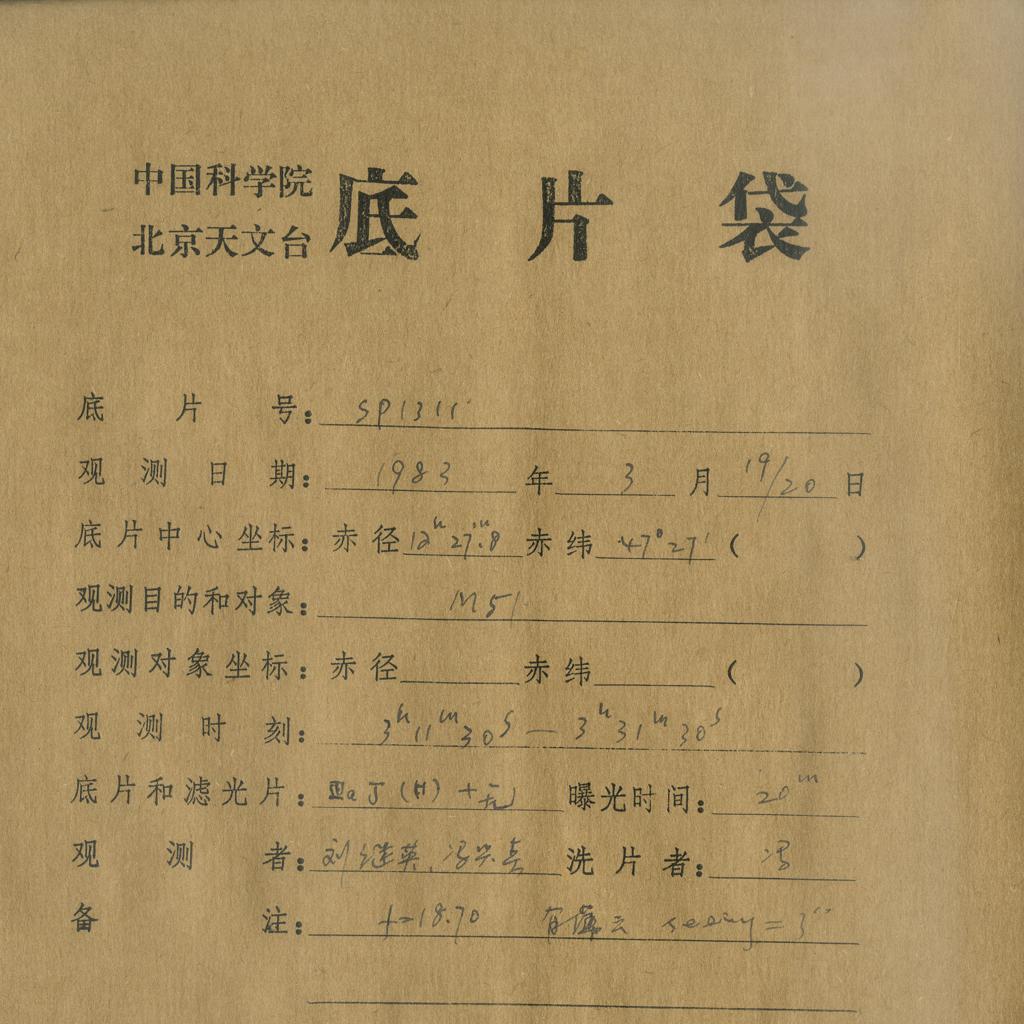 中国科学院
北京天文台
底片袋
底片号：SP1311
观测日期：1983年3月19/20日
底片中心坐标：赤径12ʰ27ᵐ.8赤纬47°27′（ ）
观测目的和对象：M51
观测对象坐标：赤径 赤纬 （ ）
观测时刻：3ʰ11ᵐ30ˢ — 3ʰ31ᵐ30ˢ
底片和滤光片：ⅢaJ(H)+无 曝光时间：20ᵐ
观测者：刘继英、冯兴 洗片者：冯
备注：f=18.70 有薄云 seeing=3″